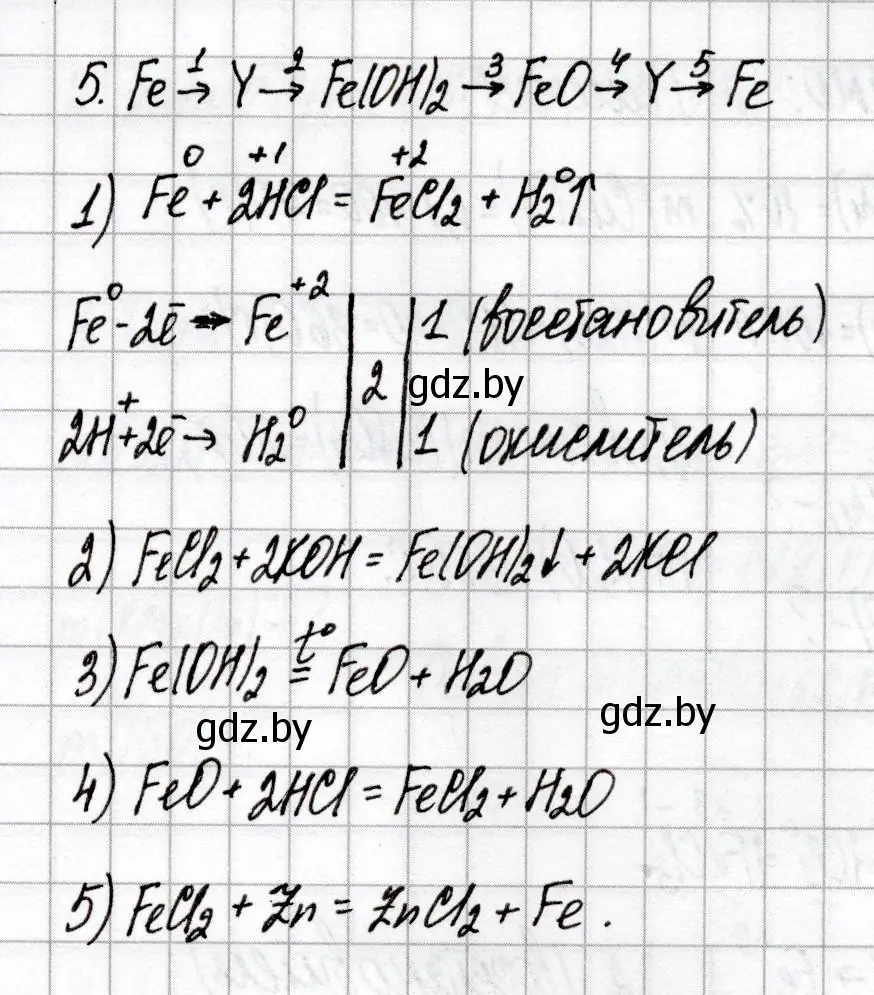 5. Fe →¹ Y →² Fe(OH)₂ →³ FeO →⁴ Y →⁵ Fe
1) Fe⁰ + 2H⁺¹Cl = Fe⁺²Cl₂ + H₂⁰↑
Fe⁰ - 2ē → Fe⁺² | | 1 (восстановитель)
2
gdz.by
2H⁺ + 2ē → H₂⁰ | | 1 (окислитель)
2) FeCl₂ + 2KOH = Fe(OH)₂↓ + 2KCl
3) Fe(OH)₂ =^t° FeO + H₂O
gdz.by
gdz.by
4) FeO + 2HCl = FeCl₂ + H₂O
5) FeCl₂ + Zn = ZnCl₂ + Fe.